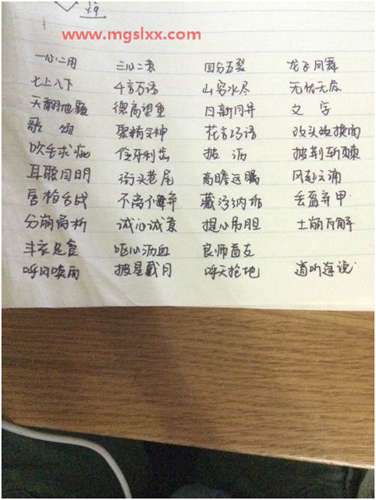 www.mgslxx.com
一心二用 三心二意 四分五裂 龙飞凤舞
七上八下 千言万语 山穷水尽 无忧无虑
天翻地覆 德高望重 日新月异 文字
歌颂 聚精会神 花言巧语 改头换面
吹毛求疵 伶牙俐齿 披沥 披荆斩棘
耳聪目明 街头巷尾 高瞻远瞩 风起云涌
唇枪舌战 不屑 藏污纳垢 丢盔弃甲
分崩离析 诚心诚意 提心吊胆 土崩瓦解
丰衣足食 呕心沥血 良师益友
呼风唤雨 披星戴月 呼天抢地 道听途说